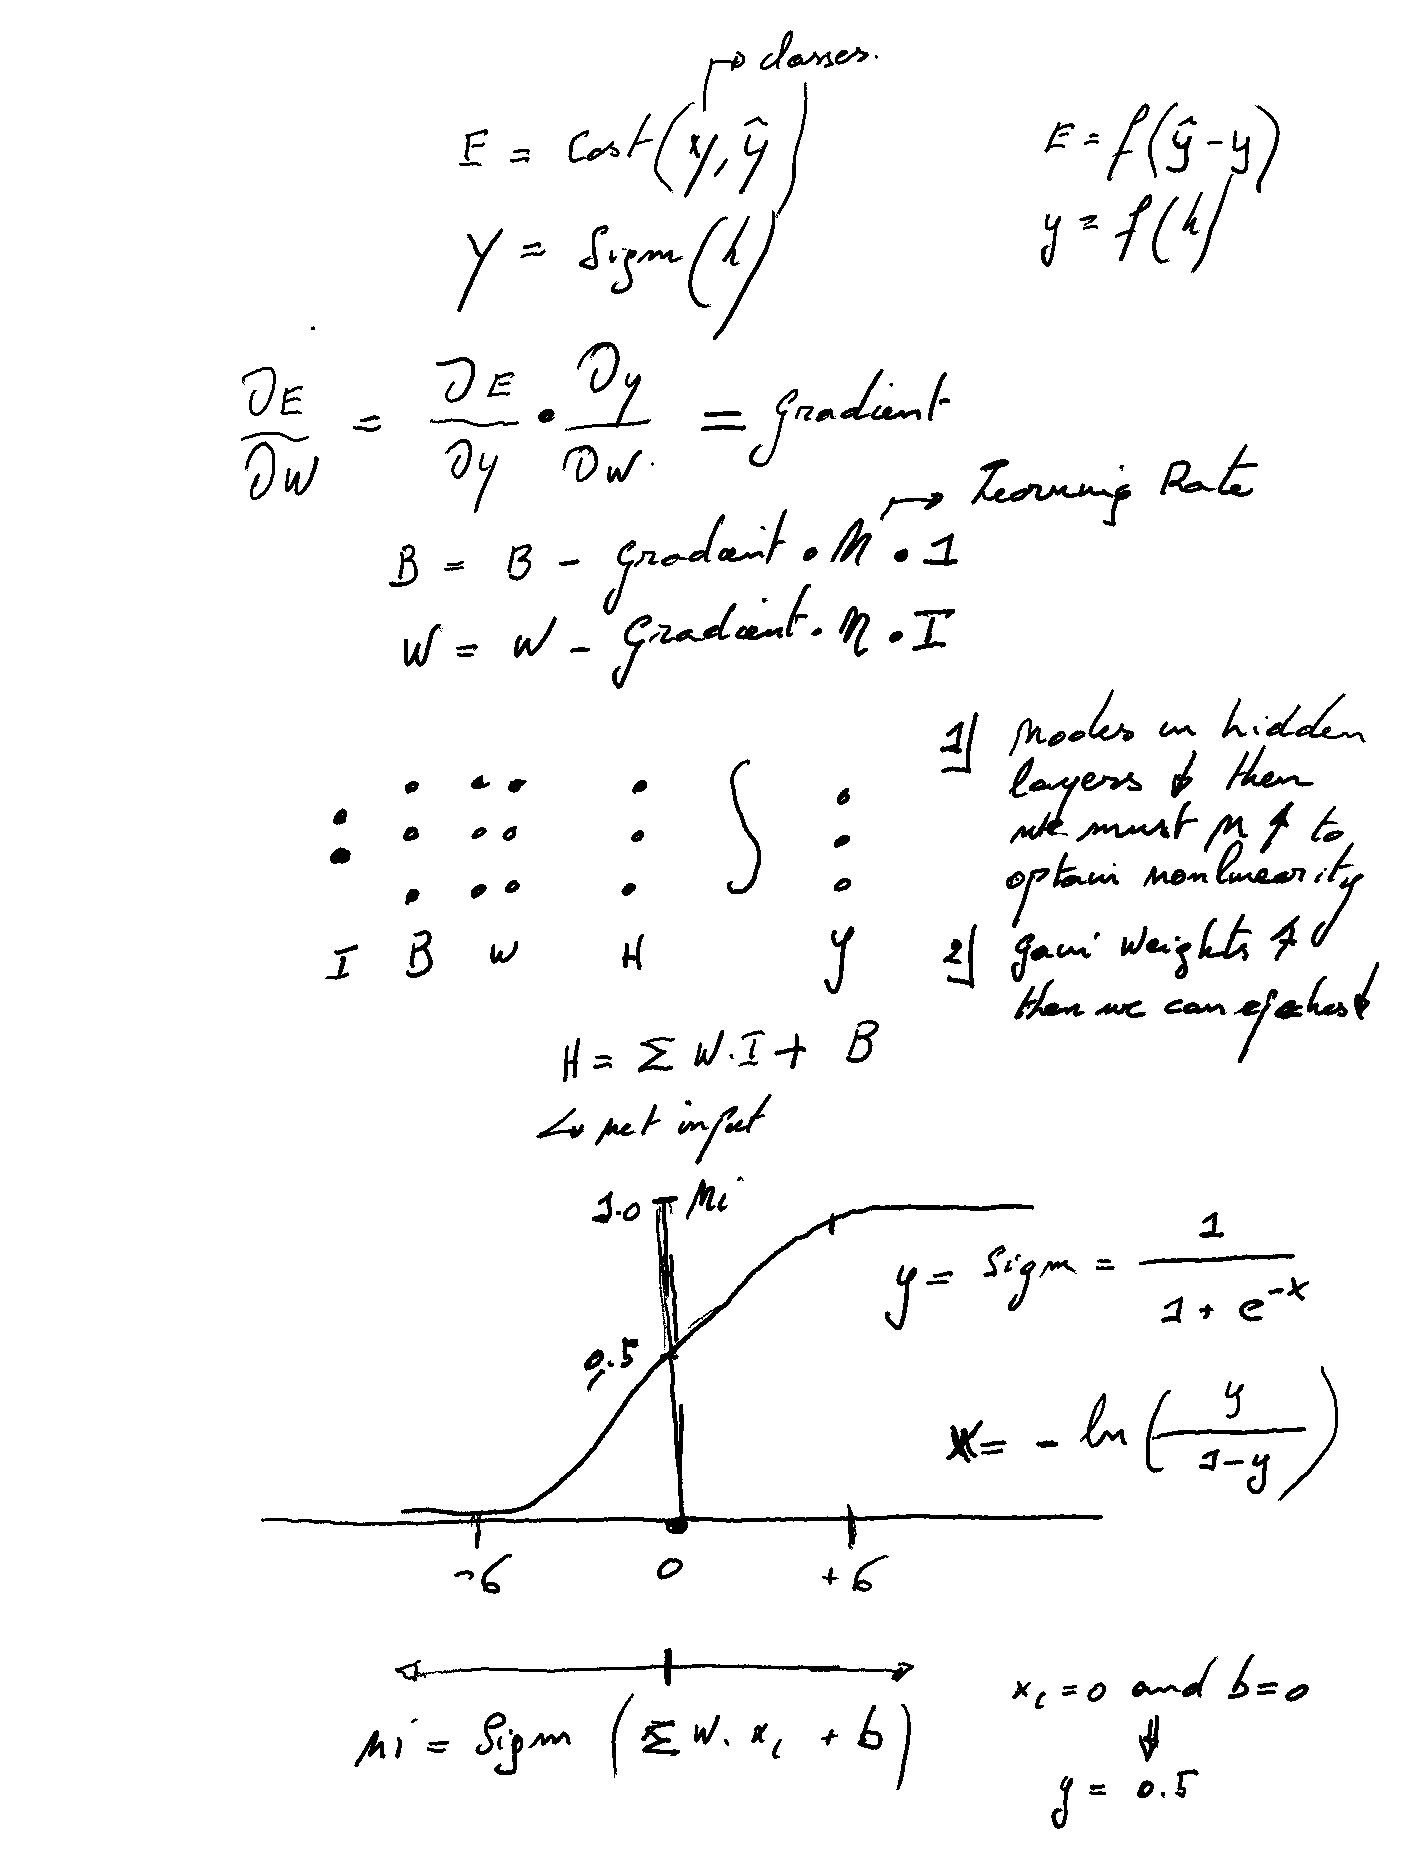 classes.
E = Cost(y, ŷ)
E = f(ŷ - y)
Y = Sigm(h)
y = f(h)
∂E/∂W = ∂E/∂y • ∂y/∂W = gradient
Learning Rate
B = B - gradient • η • 1
W = W - Gradient • η • I
1) Nodes in hidden
layers ↓ then
we must η ↑ to
optain nonlinearity
I B W H y
2) gain weights ↑
then we can epochs ↓
H = Σ W.I + B
↳ net input
1.0 Ni
y = Sigm = 1/(1 + e^-x)
0.5
x = - ln(y/(1-y))
-6 0 +6
xi = 0 and b = 0
Ni = Sigm (Σ W. xi + b)
⇓
y = 0.5